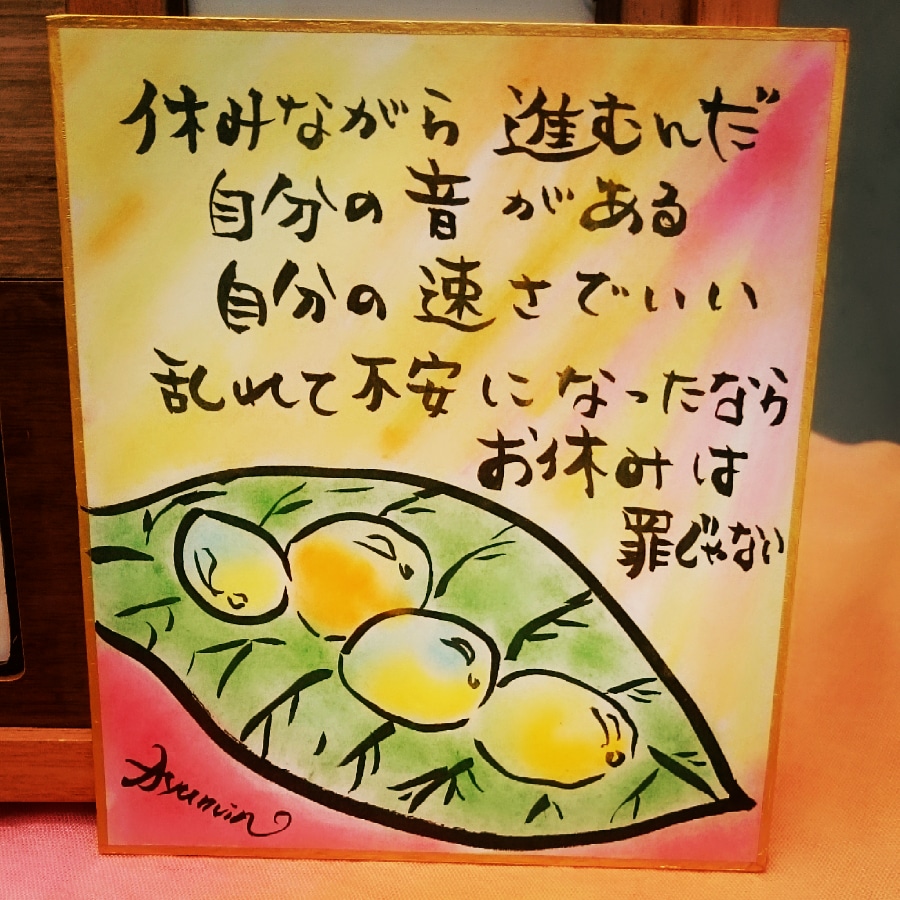 休みながら進むんだ
自分の音がある
自分の速さでいい
乱れて不安になったなら
お休みは
罪じゃない
Ayumin